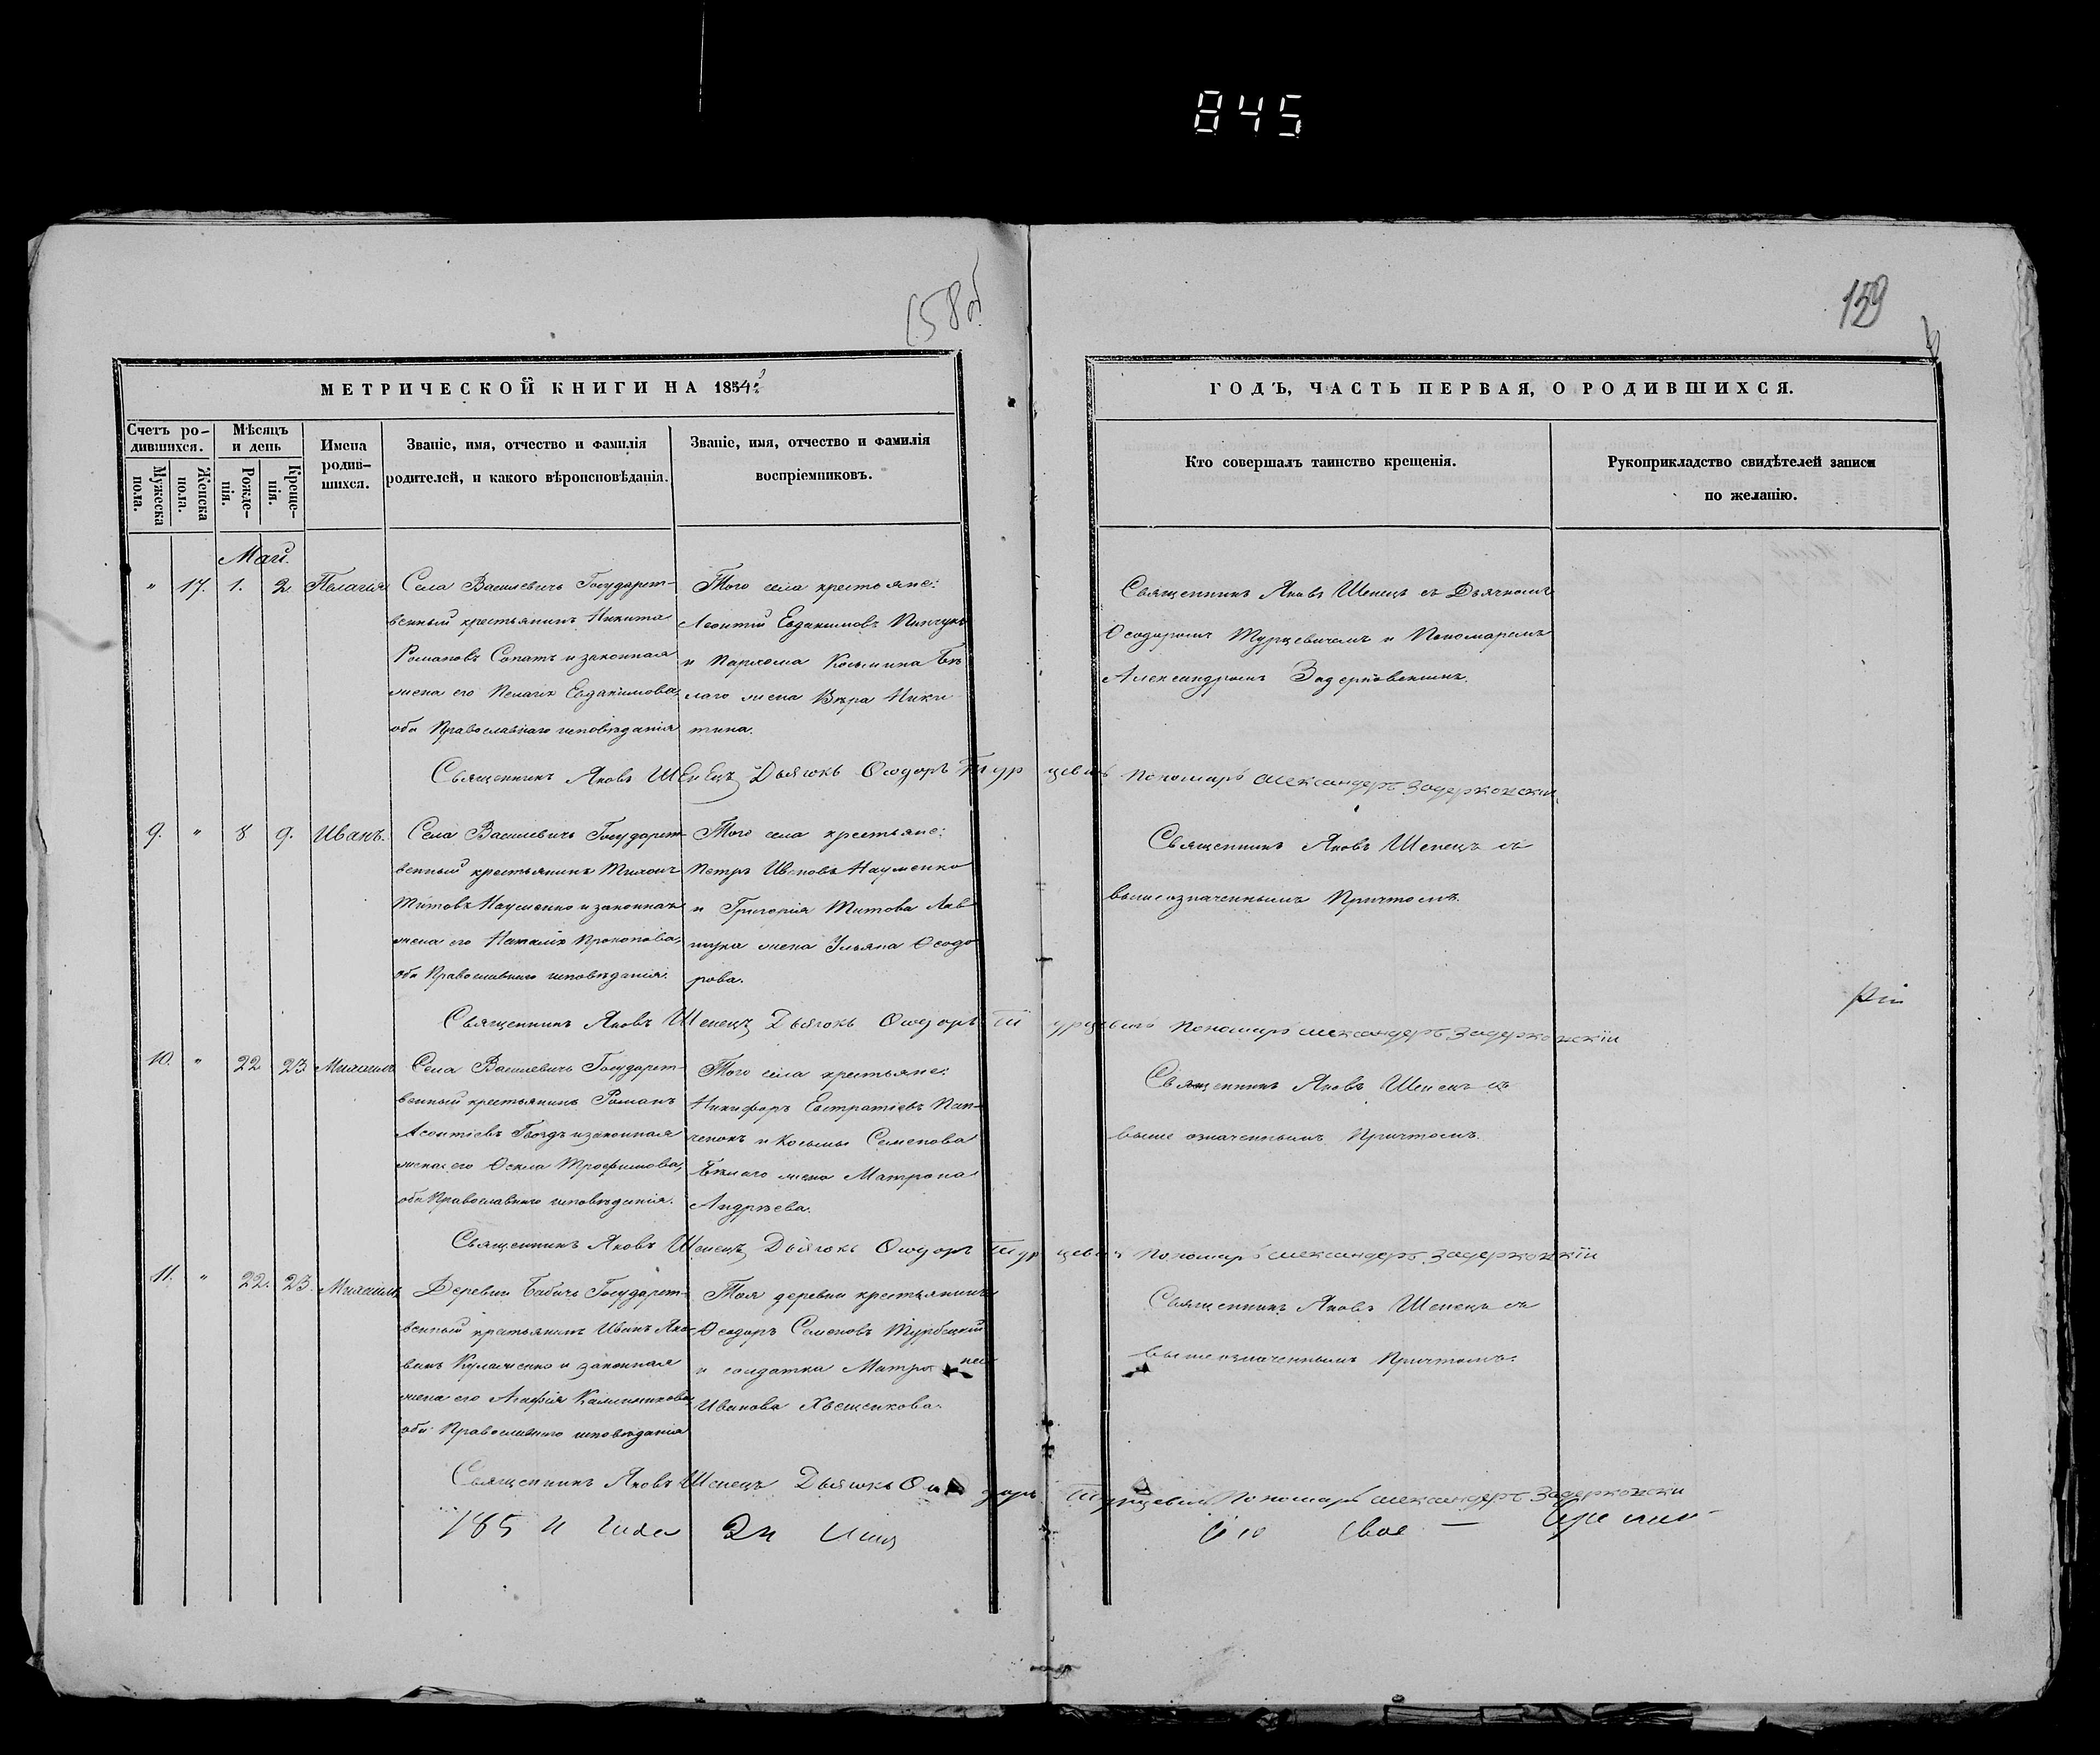 845
158об
159
МЕТРИЧЕСКОЙ КНИГИ НА 1854й
ГОДЪ, ЧАСТЬ ПЕРВАЯ, О РОДИВШИХСЯ.
Счетъ ро-
дившихся.
Мужеска
пола.
Женска
пола.
Мѣсяцъ
и день
Рожде-
нія.
Креще-
нія.
Имена
родив-
шихся.
Званіе, имя, отчество и фамилія
родителей, и какого вѣроисповѣданія.
Званіе, имя, отчество и фамилія
воспріемниковъ.
Кто совершалъ таинство крещенія.
Рукоприкладство свидѣтелей записи
по желанію.
Май.
" 17. 1. 2. Пелагія
Села Василевичь Государст-
венный крестьянинъ Никита
Романовъ Сопатъ и законная
жена его Пелагія Евдокимова,
оба Православнаго исповѣданія
Того села крестьяне:
Леонтій Евдокимовъ Пинчукъ
и Пархома Косьмина Бѣ
лаго жена Вѣра Ники
тина.
Священникъ Яковъ Шенецъ съ Дьячкомъ
Ѳеодоромъ Турцевичемъ и Пономаремъ
Александромъ Задерковскимъ.
Священникъ Яковъ Шенецъ Дьячокъ Ѳеодоръ Турцевичъ Пономарь Александеръ Задерковскій
9. " 8 9. Иванъ.
Села Василевичь Государст-
венный крестьянинъ Тихонъ
Титовъ Науменко и законная
жена его Наталія Прокопова,
оба Православнаго исповѣданія.
Того села крестьяне:
Петръ Ивановъ Науменко
и Григорія Титова
жена Ульяна Ѳеодо
рова.
Священникъ Яковъ Шенецъ съ
вышеозначеннымъ Причтомъ.
Священникъ Яковъ Шенецъ Дьячокъ Ѳеодоръ Турцевичъ Пономарь Александеръ Задерковскій
10. " 22 23 Михаилъ
Села Василевичь Государст-
венный крестьянинъ Романъ
Леонтіевъ Гвоздъ и законная
жена его Ѳекла Трофимова,
оба Православнаго исповѣданія.
Того села крестьяне:
Никифоръ Евстратіевъ
и Косьмы Семенова
Бѣлаго жена Матрона
Андрѣева.
Священникъ Яковъ Шенецъ съ
выше означеннымъ Причтомъ.
Священникъ Яковъ Шенецъ Дьячокъ Ѳеодоръ Турцевичъ Пономарь Александеръ Задерковскій
11. " 22. 23. Михаилъ
Деревни Бабичъ Государст-
венный крестьянинъ Иванъ Яко-
вивъ и законная
жена его Агафія Калинникова
оба Православнаго исповѣданія
Тоя деревни крестьянинъ
Ѳеодоръ Семеновъ
и солдатка Матрона
Иванова
Священникъ Яковъ Шенецъ съ
выше означеннымъ Причтомъ.
Священникъ Яковъ Шенецъ Дьячокъ Ѳеодоръ Турцевичъ Пономарь Александеръ Задерковскій
1854 года